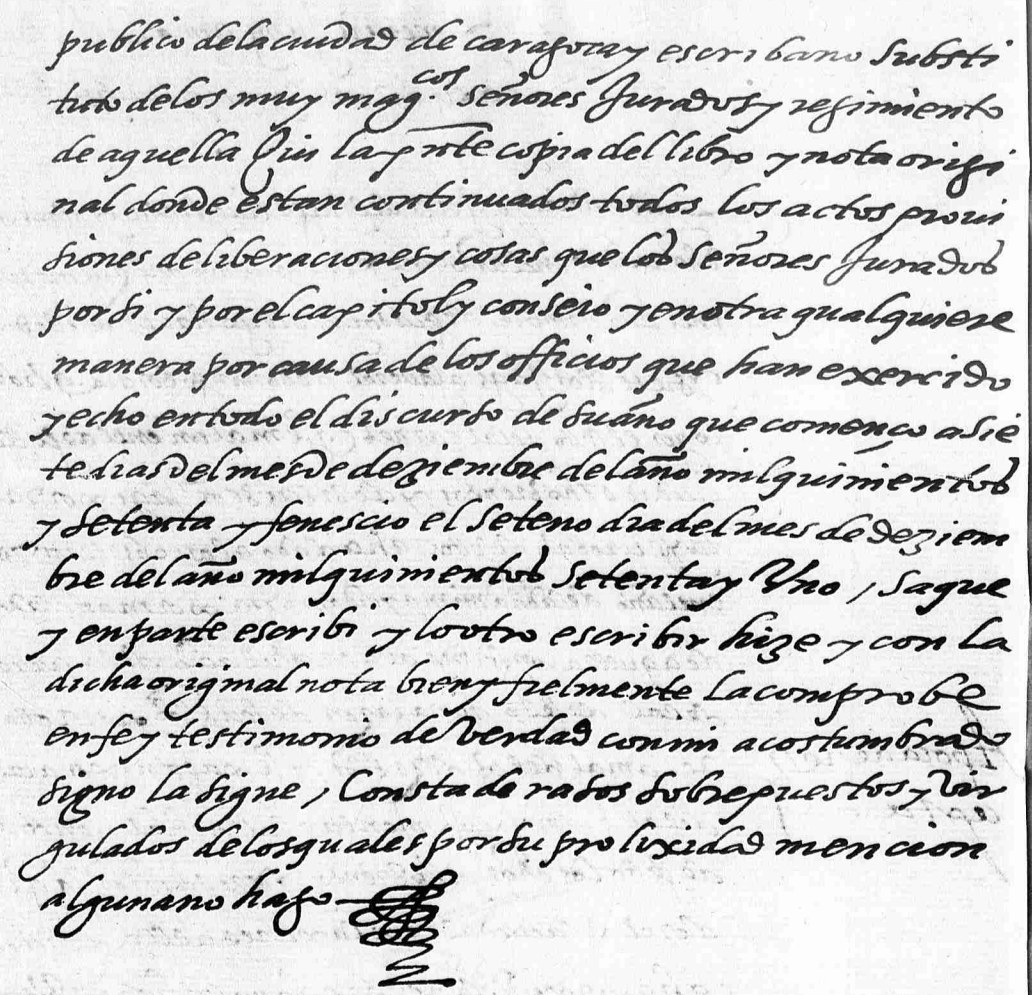 publico dela ciudad de caragoça y escribano Substi
tuto delos muy mag.cos Señores Jurados y regimiento
de aquella Qui la pnte copia del libro y nota origi
nal donde estan continuados todos los actos provi
siones deliberaciones y cosas que los Señores Jurados
por si y por el capitol y conseio y en otra qualquiere
manera por causa de los officios que han exercido
y echo en todo el discurso de su año que començo a sie
te dias del mes de deziembre del año mil quinientos
y setenta y fenescio el seteno dia del mes de deziem
bre del año mil quinientos setenta y Uno, saque
y en parte escribi y lo otro escribir hize y con la
dicha original nota bien y fielmente la comprobe
en fe y testimonio de verdad con mi acostumbrado
signo la signe, Consta de rasos sobrepuestos y vir
gulados de los quales por su prolixidad mencion
alguna no hago